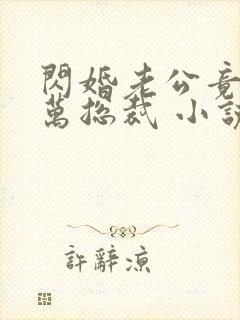 閃婚老公竟
萬總裁 小說
許辭涼